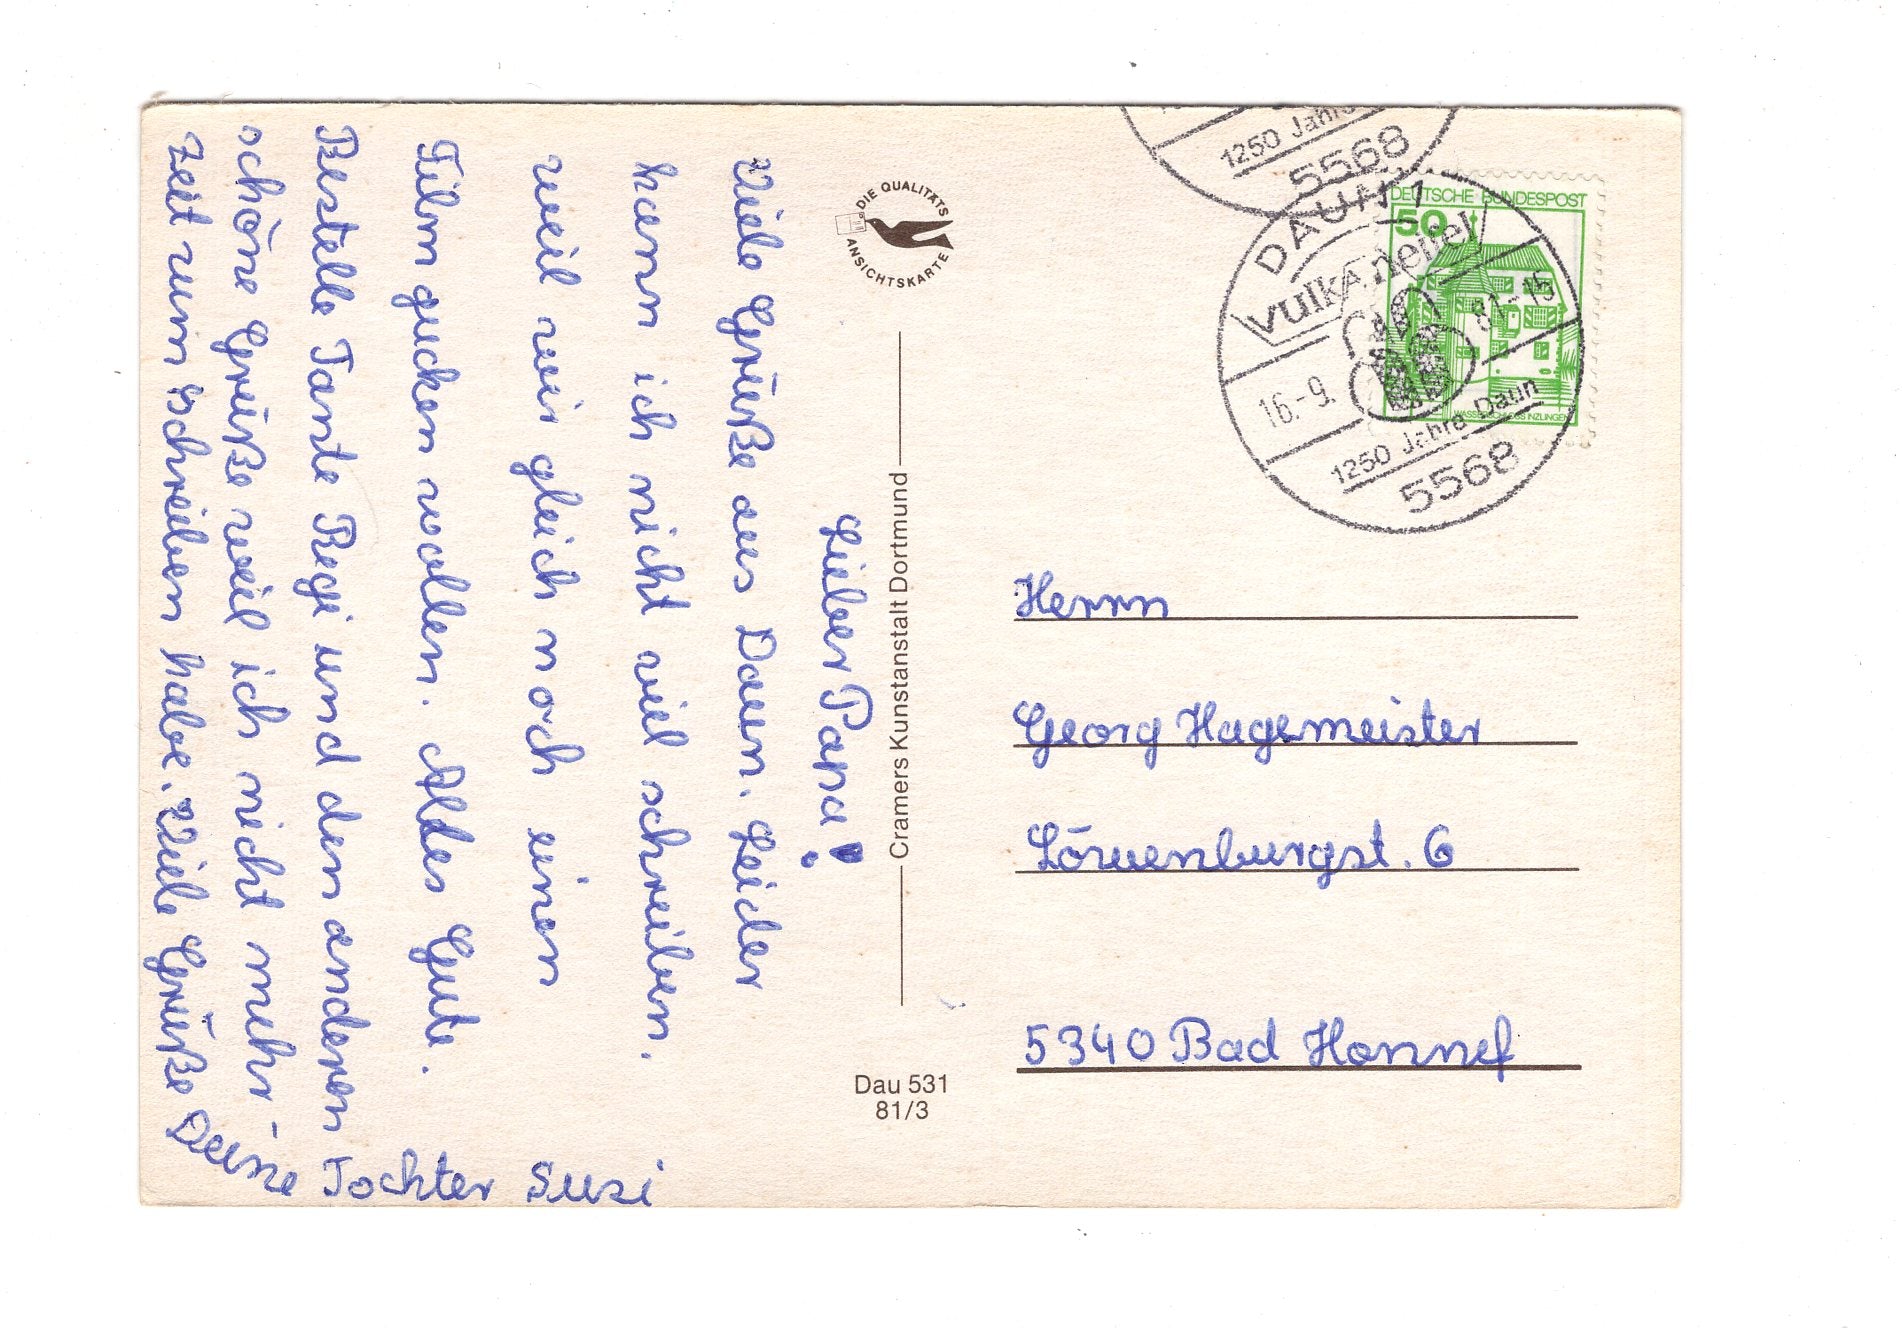 Lieber Papa!
Viele Grüße aus Daun. Leider
kann ich nicht viel schreiben.
weil wir gleich noch einen
Film gucken wollen. Alles Gute.
Bestelle Tante Regi und den anderen
schöne Grüße weil ich nicht mehr
zeit zum schreiben habe. Viele Grüße Deine
Tochter Susi
DIE QUALITÄTS
ANSICHTSKARTE
Cramers Kunstanstalt Dortmund
Dau 531
81/3
1250 Jahre
5568
DEUTSCHE BUNDESPOST
50
WASSERSCHLOSS INZLINGEN
DAUN 1
vulkaneifel
16.-9. 81-15
1250 Jahre Daun
5568
Herrn
Georg Hagemeister
Löwenburgst. 6
5340 Bad Honnef